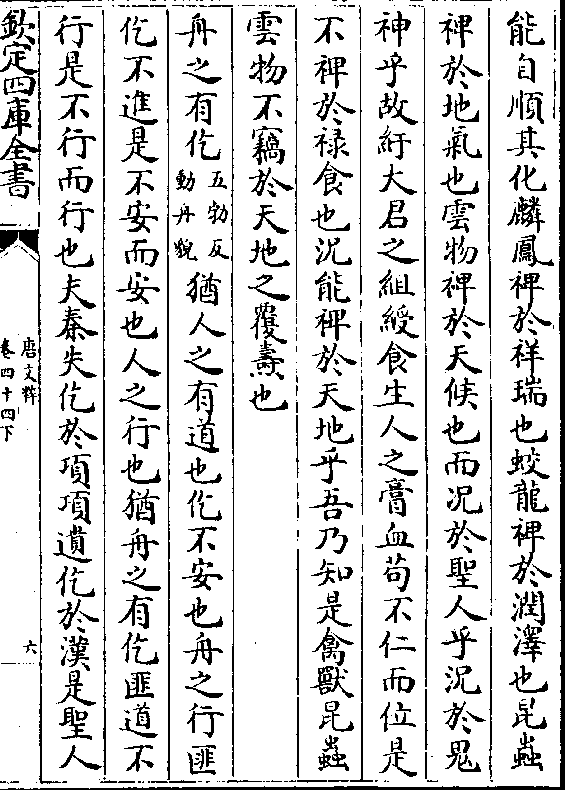 能自順其化麟鳳禆於祥瑞也蛟龍禆於潤澤也昆蟲
禆於地氣也雲物禆於天候也而况於聖人乎况於鬼
神乎故紆大君之組綬食生人之膏血苟不仁而位是
不禆於禄食也况能禆於天地乎吾乃知是禽獸昆蟲
雲物不竊於天地之覆燾也
舟之有仡五勃反動舟貌猶人之有道也仡不安也舟之行匪
仡不進是不安而安也人之行也猶舟之有仡匪道不
行是不行而行也夫秦失仡於項項遺仡於漢是聖人
欽定四庫全書
唐文粹
卷四十四下
六